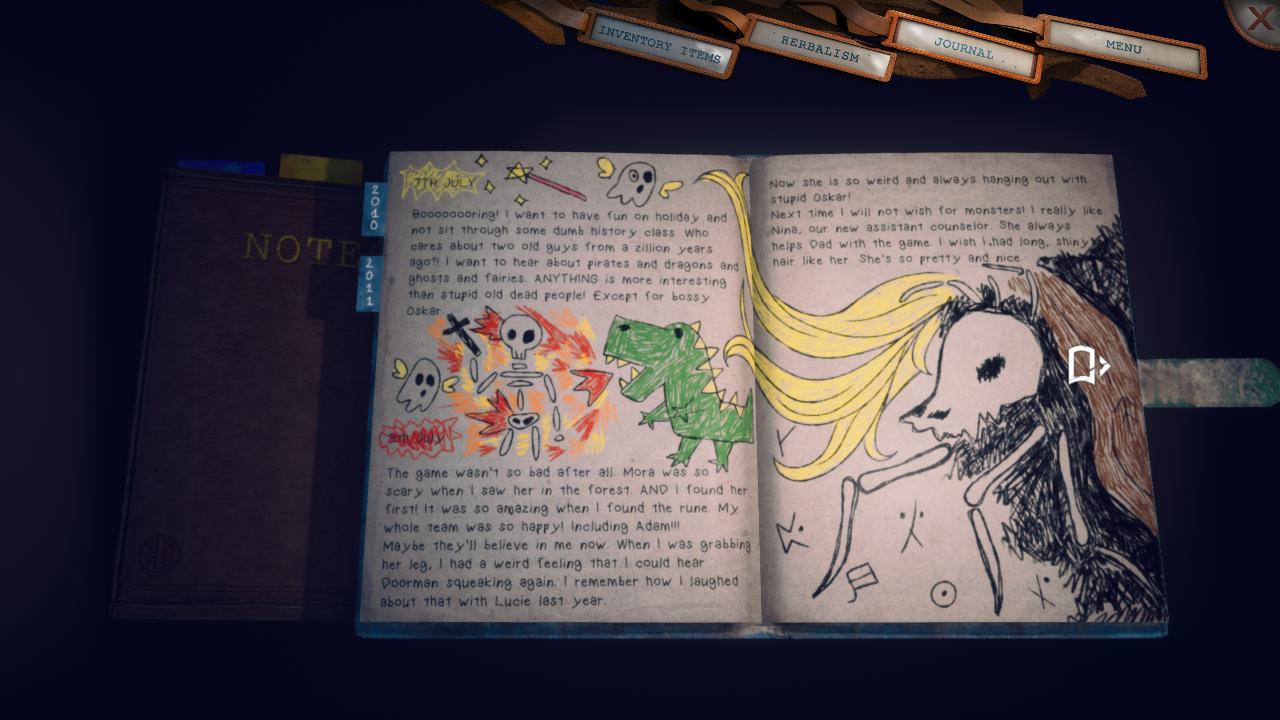 INVENTORY ITEMS
HERBALISM
JOURNAL
MENU
NOTE
2010
2011
7TH JULY
Booooooooring! I want to have fun on holiday and
not sit through some dumb history class. Who
cares about two old guys from a zillion years
ago?! I want to hear about pirates and dragons and
ghosts and fairies. ANYTHING is more interesting
than stupid old dead people! Except for bossy
Oskar.
9th July
The game wasn't so bad after all. Mora was so
scary when I saw her in the forest. AND I found her
first! It was so amazing when I found the rune. My
whole team was so happy! Including Adam!!!
Maybe they'll believe in me now. When I was grabbing
her leg, I had a weird feeling that I could hear
Doorman squeaking again. I remember how I laughed
about that with Lucie last year.
Now she is so weird and always hanging out with
stupid Oskar!
Next time I will not wish for monsters! I really like
Nina, our new assistant counselor. She always
helps Dad with the game. I wish I had long, shiny
hair like her. She's so pretty and nice.